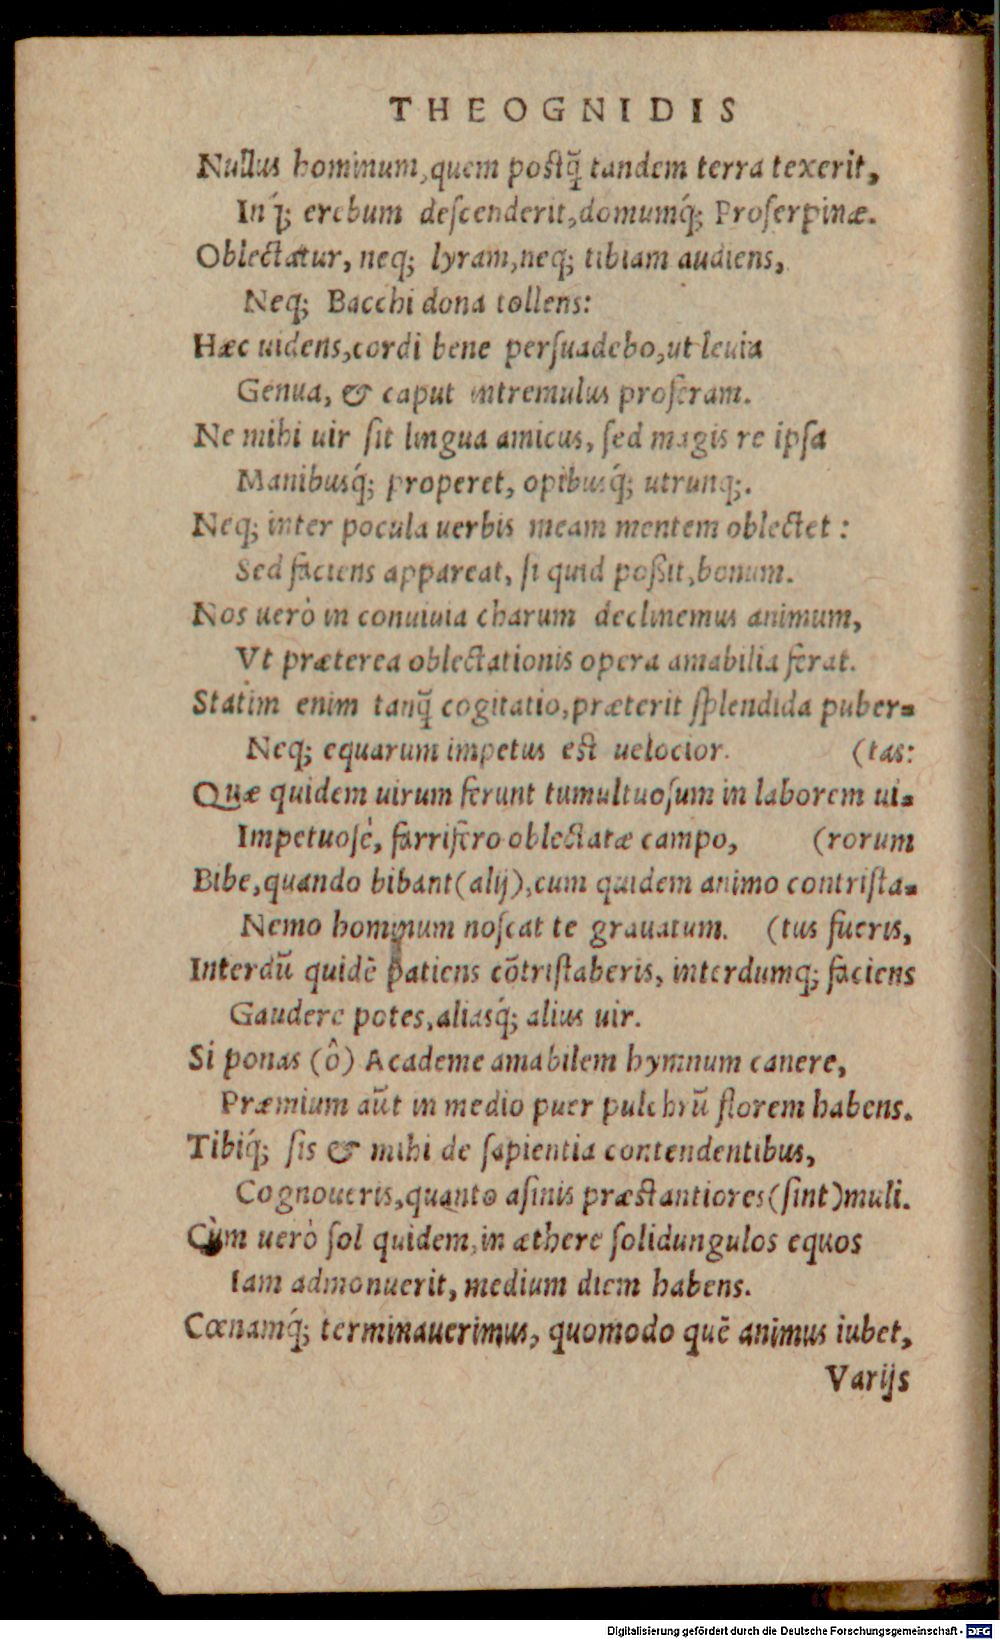 THEOGNIDIS
Nullus hominum, quem postq̃ tandem terra texerit,
In q́; erebum descenderit, domumq́; Proserpinæ.
Oblectatur, neq; lyram, neq; tibiam audiens,
Neq; Bacchi dona tollens:
Hæc uidens, cordi bene persuadebo, ut leuia
Genua, & caput intremulus proferam.
Ne mihi uir sit lingua amicus, sed magis re ipsa
Manibusq́; properet, opibusq́; utrunq;.
Neq; inter pocula uerbis meam mentem oblectet:
Sed faciens appareat, si quid poßit, bonum.
Nos uerò in conuiuia charum declinemus animum,
Vt præterea oblectationis opera amabilia ferat.
Statim enim tanq̃ cogitatio, præterit splendida puber-
Neq; equarum impetus est uelocior. (tas:
Quæ quidem uirum ferunt tumultuosum in laborem ui-
Impetuosè, farrifero oblectatæ campo, (rorum
Bibe, quando bibant (alij), cum quidem animo contrista-
Nemo hominum noscat te grauatum. (tus fueris,
Interdũ quidē patiens cõtristaberis, interdumq; faciens
Gaudere potes, aliasq́; alius uir.
Si ponas (ô) Academe amabilem hymnum canere,
Præmium aũt in medio puer pulchrũ florem habens.
Tibiq́; sis & mihi de sapientia contendentibus,
Cognoueris, quanto asinis præstantiores (sint) muli.
Cùm uerò sol quidem, in æthere solidungulos equos
Iam admonuerit, medium diem habens.
Cœnamq́; terminauerimus, quomodo quē animus iubet,
Varijs
Digitalisierung gefördert durch die Deutsche Forschungsgemeinschaft - DFG